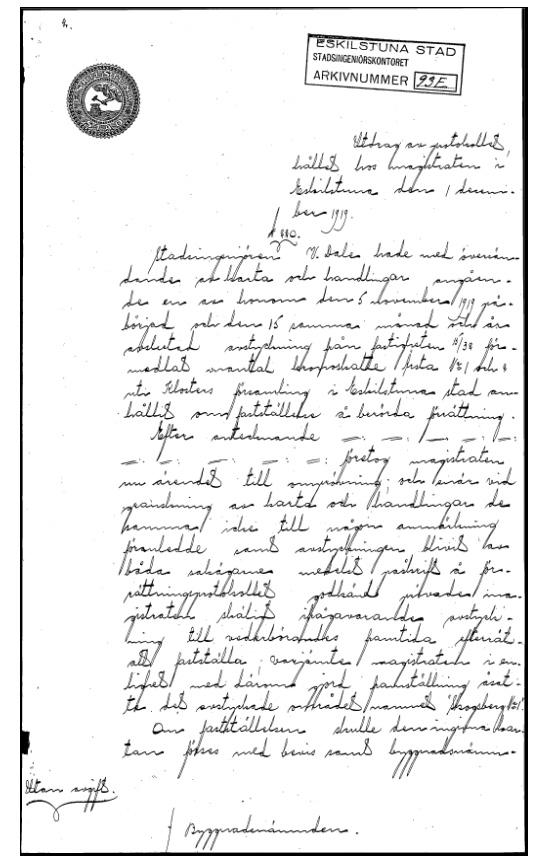 ESKILSTUNA STAD
STADSINGENIÖRSKONTORET
ARKIVNUMMER 93E
Utdrag av protokollet,
hållet hos magistraten i
Eskilstuna den 1 decem-
ber 1919.
§ 440.
Stadsingenjören V. Dales hade med översän-
dande av karta och handlingar angåen-
de en av honom den 5 november 1919 på-
börjad och den 15 samma månad och år
avslutad avstyckning från fastigheten för-
medlat mantal kronoskatte № 1 och
uti Klosters församling i Eskilstuna stad an-
hållit om fastställelse å berörda förrättning.
Efter antecknande
företog magistraten
nu ärendet till omprövning; och enär vid
granskning av karta och handlingar de-
samma icke till någon anmärkning
föranledde samt avstyckningen blivit av
båda sakägarne medelst påskrift å för-
rättningsprotokollet godkänd prövades ma-
gistraten skäligt ifrågavarande avstyck-
ning till vederbörandes framtida efterrät-
fastställa; varjämte magistraten i en-
lighet med därom gjord framställning åsat-
te det avstyckade området namnet "Skogsberg № 1".
Om fastställelsen skulle den ingivna kar-
tan förses med bevis samt byggnadsnämn-
Utan avgift.
Byggnadsnämnden.